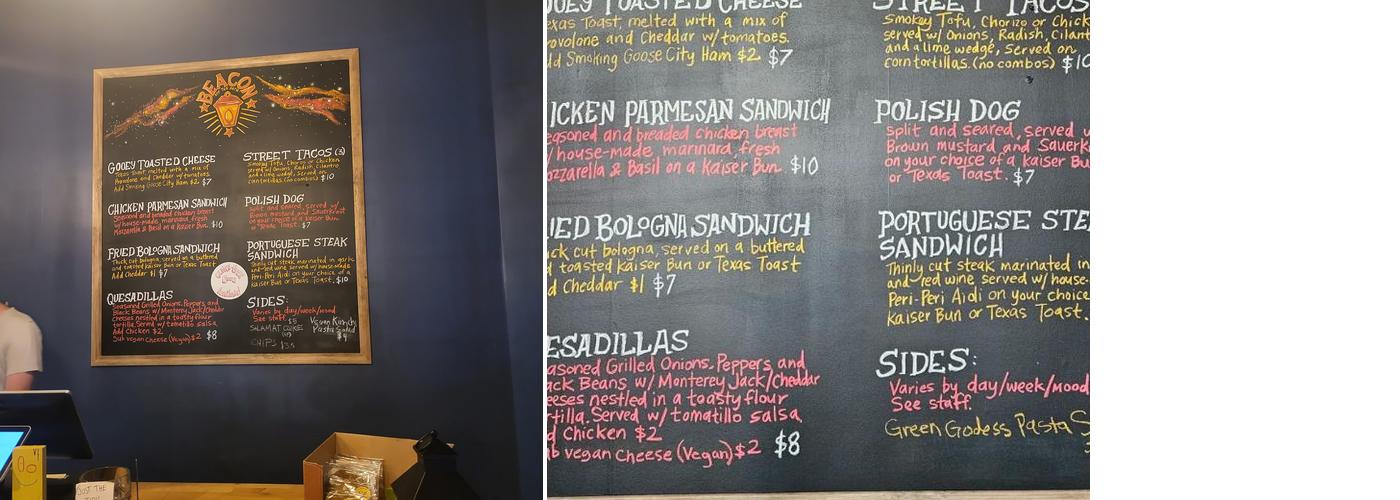 BEACON
GOOEY TOASTED CHEESE
Texas Toast, melted with a mix of
Provolone and Cheddar w/tomatoes.
Add Smoking Goose City Ham $2 $7
CHICKEN PARMESAN SANDWICH
Seasoned and breaded chicken breast
w/house-made marinara, fresh
Mozzarella & Basil on a Kaiser Bun. $10
FRIED BOLOGNA SANDWICH
Thick cut bologna, served on a buttered
and toasted Kaiser Bun or Texas Toast
Add Cheddar $1 $7
QUESADILLAS
Seasoned Grilled Onions, Peppers, and
Black Beans w/ Monterey Jack/Cheddar
cheeses nestled in a toasty flour
tortilla. Served w/ tomatillo salsa.
Add Chicken $2
Sub vegan Cheese (Vegan) $2 $8
STREET TACOS (3)
Smokey Tofu, Chorizo or Chicken
served w/ Onions, Radish, Cilantro
and a lime wedge, Served on
corn tortillas. (no combos) $10
POLISH DOG
Split and seared, served w/
Brown mustard and Sauerkraut
on your choice of a Kaiser Bun
or Texas Toast. $7
PORTUGUESE STEAK
SANDWICH
Thinly cut steak marinated in garlic
and red wine served w/ house-made
Peri-Peri Aioli on your choice of a
Kaiser Bun or Texas Toast. $10
SIDES:
Varies by day/week/mood
See staff.
CHIPS
Vegan Kimchi
Pasta Salad
$4
JUST THE
OOEY TOASTED CHEESE
exas Toast, melted with a mix of
rovolone and Cheddar w/tomatoes.
dd Smoking Goose City Ham $2 $7
ICKEN PARMESAN SANDWICH
easoned and breaded chicken breast
/house-made marinara, fresh
ozzarella & Basil on a Kaiser Bun. $10
IED BOLOGNA SANDWICH
ick cut bologna, served on a buttered
d toasted Kaiser Bun or Texas Toast
d Cheddar $1 $7
ESADILLAS
asoned Grilled Onions, Peppers, and
ack Beans w/ Monterey Jack/Cheddar
eeses nestled in a toasty flour
rtilla. Served w/ tomatillo salsa.
d Chicken $2
b vegan Cheese (Vegan) $2 $8
STREET TACOS
Smokey Tofu, Chorizo or Chick
served w/ Onions, Radish, Cilant
and a lime wedge, Served on
corn tortillas. (no combos) $10
POLISH DOG
Split and seared, served w
Brown mustard and Sauerk
on your choice of a Kaiser Bu
or Texas Toast. $7
PORTUGUESE STE
SANDWICH
Thinly cut steak marinated in
and red wine served w/ house-
Peri-Peri Aidi on your choice
Kaiser Bun or Texas Toast.
SIDES:
Varies by day/week/mood
See staff.
Green Godess Pasta S